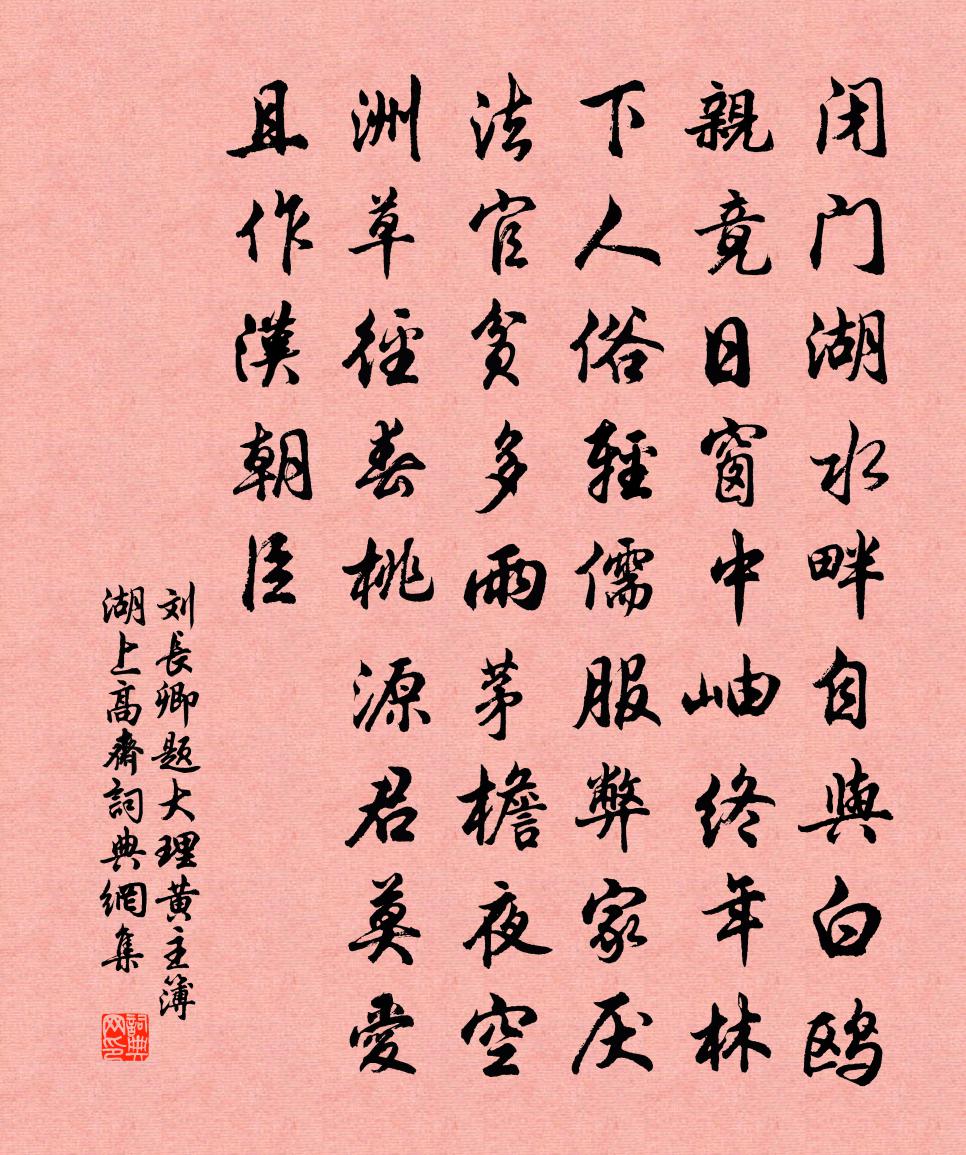 闭门湖水畔自與白鸥
親竟日窗中岫终年林
下人俗輕儒服弊家厌
法官貧多雨茅檐夜空
洲草徑春桃源君莫愛
且作漢朝臣
刘長卿题大理黄主簿
湖上高齋詞典網集
詞典网印